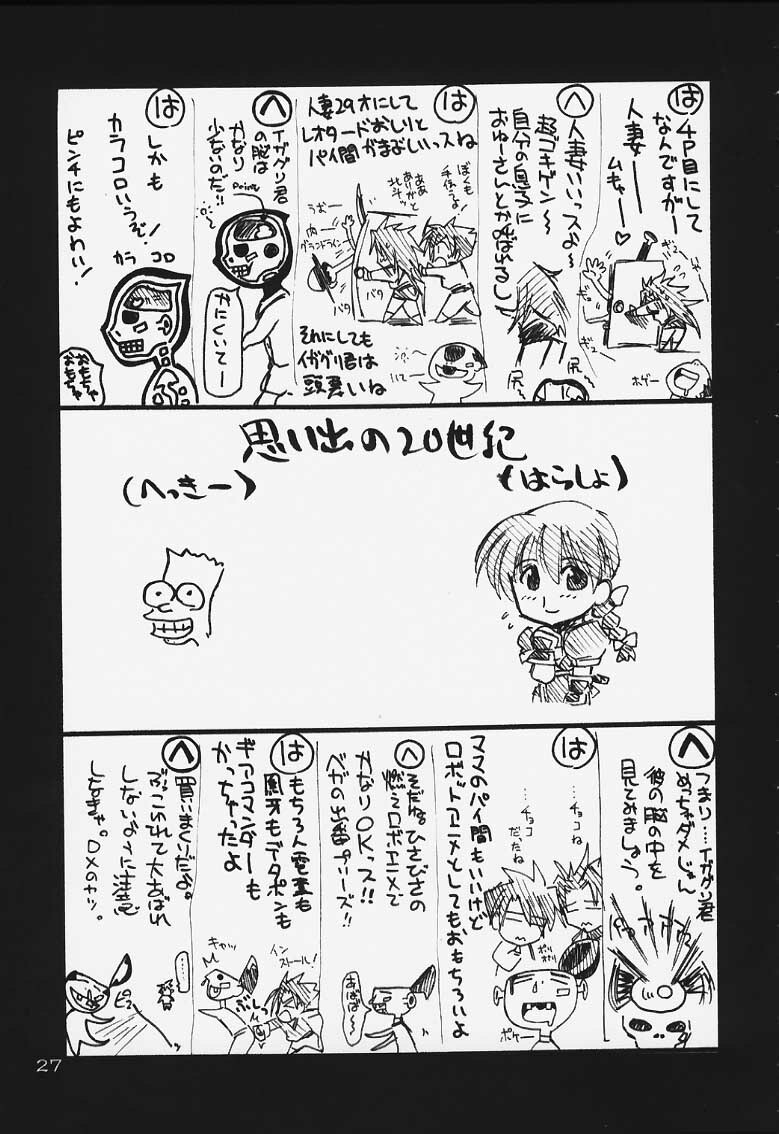 は
4P目にして
なんですがー
人妻ーー
ムキャー♡
ギュー
ギュ
ホゲー
へ
人妻いいっスよ〜
超ゴキゲン〜
自分の息子に
おゆーさんとか呼ばれるし
尻
尻
は
人妻29才にして
レオタードおしりと
パイ間がまぶいいっスね
ぼくも
手伝うよ!
ああ
ありがと
北斗ー
うおー
グランドライン
バタ
バタ
それにしても
イガグリ君は
頭悪いね
へ
イガグリ君
の脳は
かなり
少ないのだ!!
Point
かにくいてー
は
しかも
カラコロいうぞ!
ピンチにもよわい!
カラ コロ
おもちゃ
おもちゃ
思い出の20世紀
(はらしょ)
(へっきー)
へ
つまり…イガグリ君
めっちゃダメじゃん
彼の脳の中を
見てみましょう。
は
…チョコね
…チョコ
だったね
ママのパイ間もいいけど
ロボットアニメとしてもおもちろいよ
ポリ
ポリ
ポケー
へ
そだねひさびさの
燃えロボアニメで
かなりOKっス!!
ベガの出番プリーズ!!
あばば〜
は
もちろん電童も
凰牙もデタポンも
ギアコマンダーも
かっちゃったよ
キャッ
インストール!
ぶしっ
へ
買いまくりだよ。
ぶっこわれて大あばれ
しないように注意
しなきゃ。DXのヤツ。
……
ピュー
27